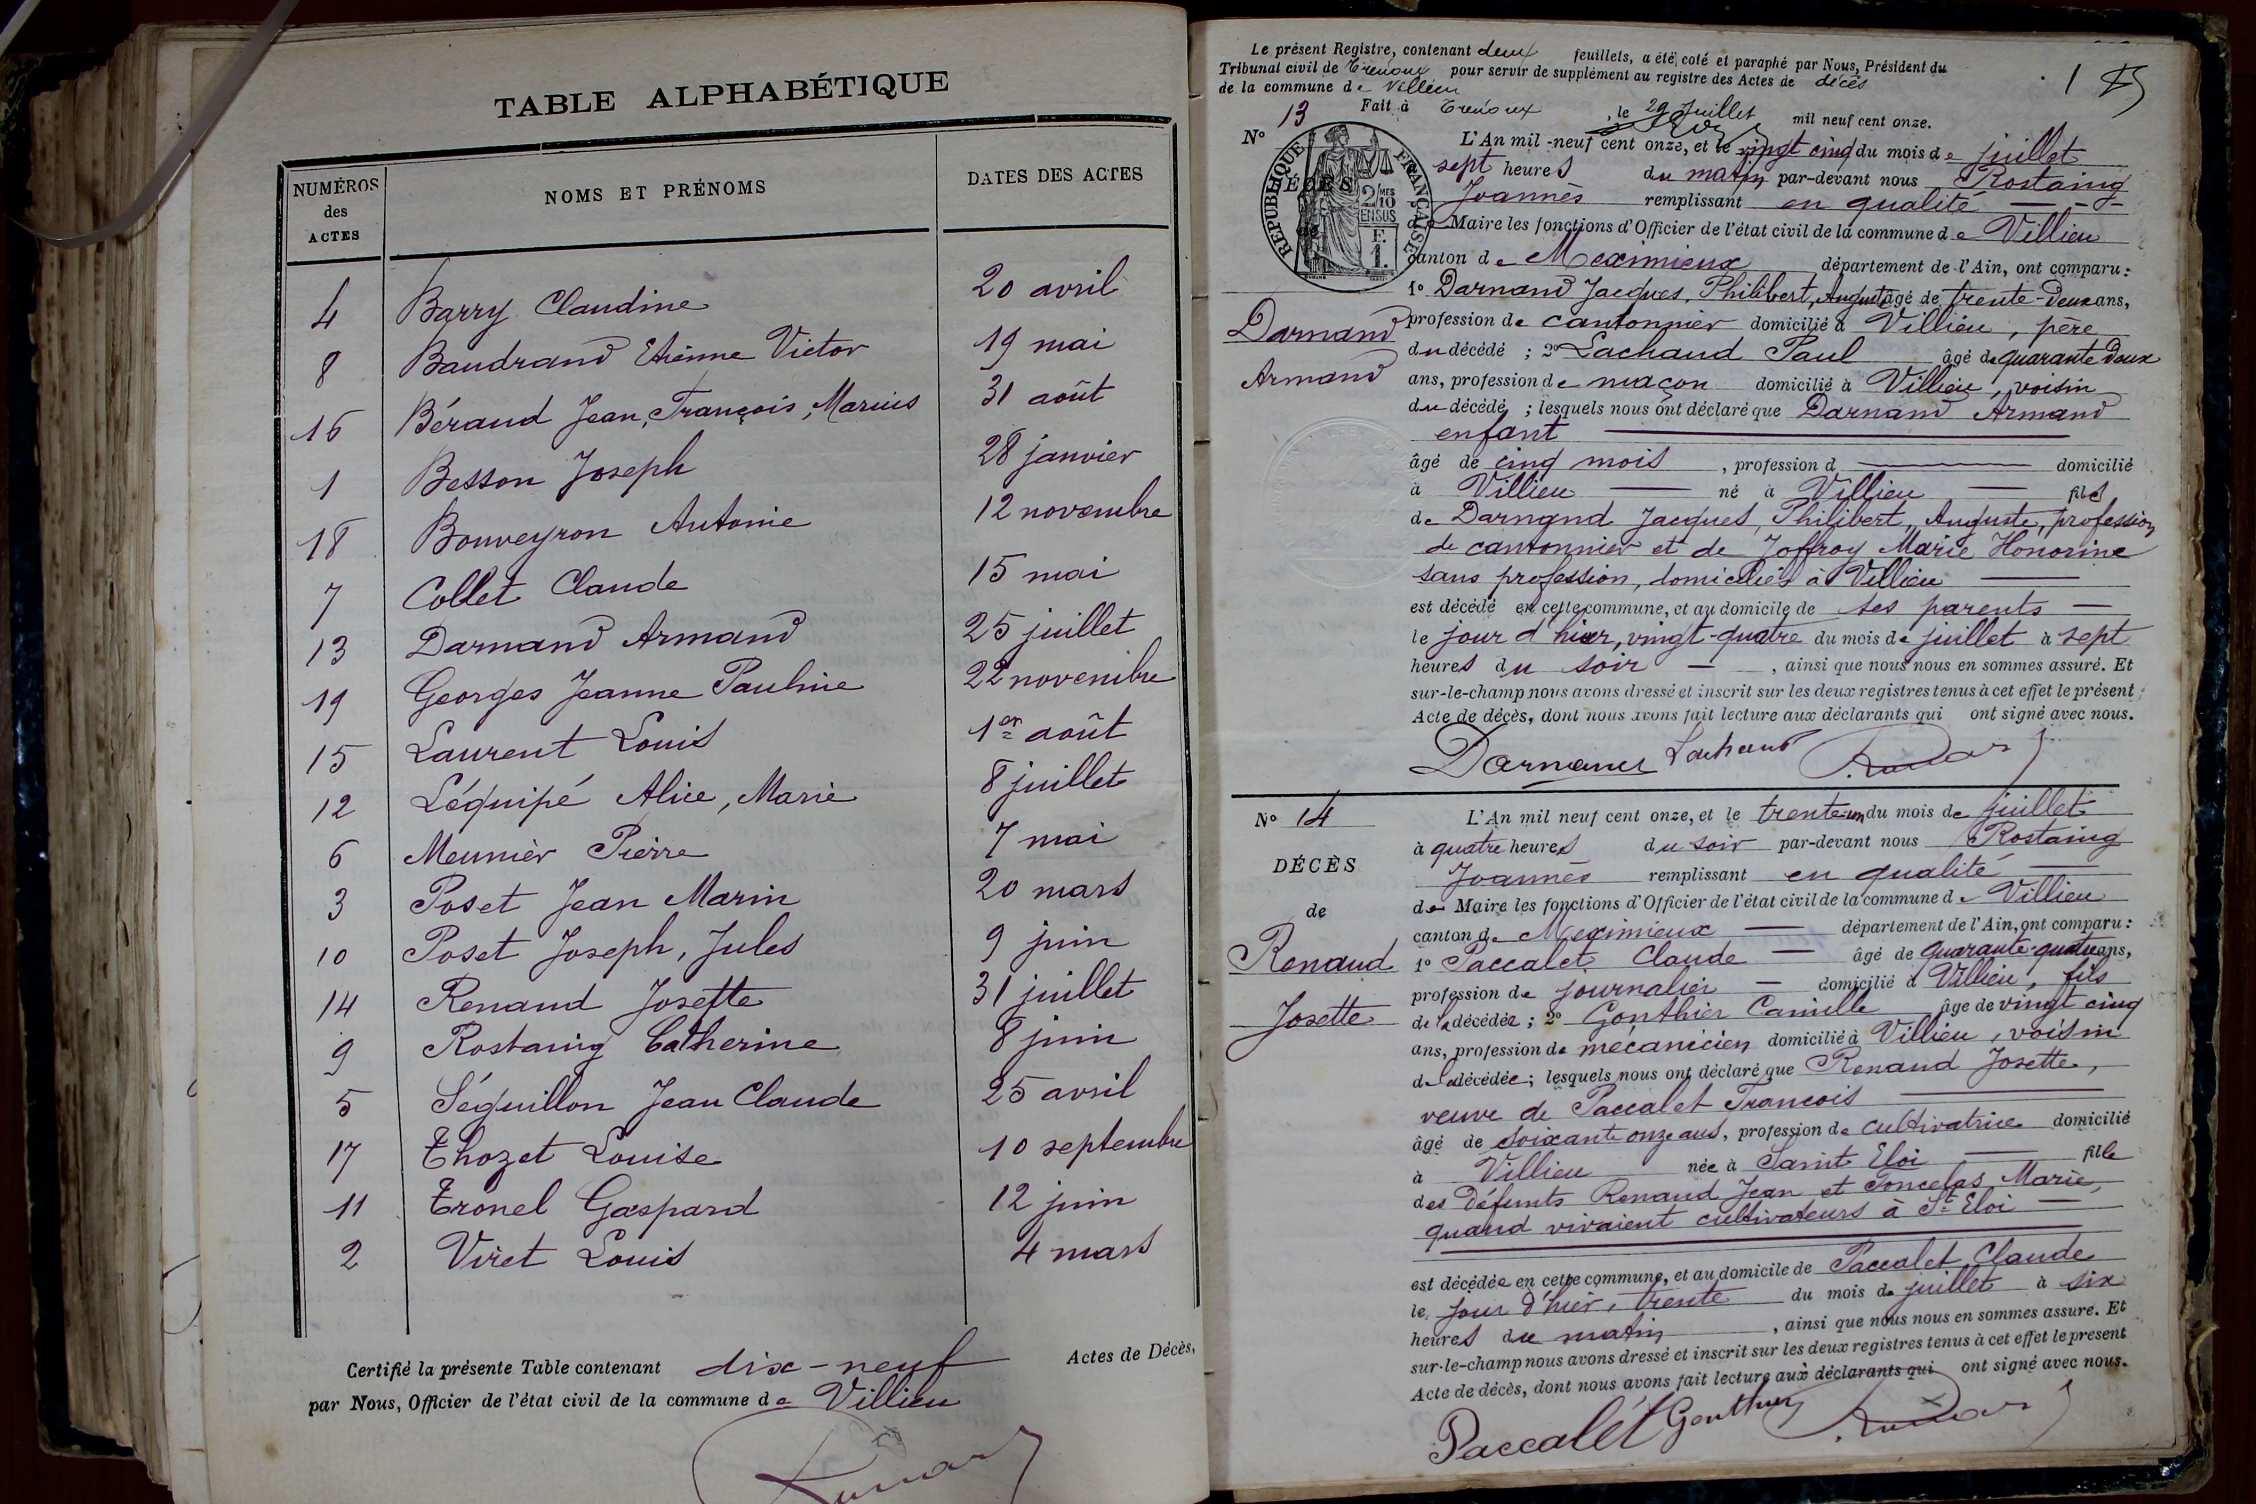 TABLE ALPHABÉTIQUE
NUMÉROS des ACTES
NOMS ET PRÉNOMS
DATES DES ACTES
4 Barry Claudine 20 avril
8 Baudrand Etienne Victor 19 mai
16 Béraud Jean, François, Marius 31 août
1 Besson Joseph 28 janvier
18 Bouveyron Antonie 12 novembre
7 Collet Claude 15 mai
13 Darnand Armand 25 juillet
19 Georges Jeanne Pauline 22 novembre
15 Laurent Louis 1er août
12 Léquipé Alice, Marie 8 juillet
6 Meunier Pierre 7 mai
3 Poset Jean Marin 20 mars
10 Poset Joseph, Jules 9 juin
14 Renaud Josette 31 juillet
9 Rostaing Catherine 8 juin
5 Séguillon Jean Claude 25 avril
17 Thozet Louise 10 septembre
11 Tronel Gaspard 12 juin
2 Viret Louis 4 mars
Certifié la présente Table contenant dix-neuf Actes de Décès,
par Nous, Officier de l'état civil de la commune de Villieu
Le présent Registre, contenant deux feuillets, a été coté et paraphé par Nous, Président du
Tribunal civil de Trévoux pour servir de supplément au registre des Actes de décès
de la commune de Villieu
Fait à Trévoux, le 29 Juillet mil neuf cent onze.
1
N° 13
RÉPUBLIQUE FRANÇAISE
2/10 MES EN SUS
E. 1.
L'An mil-neuf cent onze, et le vingt cinq du mois de juillet
sept heures du matin par-devant nous Rostaing
Joannès remplissant en qualité
de Maire les fonctions d'Officier de l'état civil de la commune de Villieu
canton de Meximieux département de l'Ain, ont comparu :
1° Darnand Jacques, Philibert, Auguste âgé de trente-deux ans,
Darnand
profession de cantonnier domicilié à Villieu, père
du décédé ; 2° Lachaud Paul âgé de quarante deux
Armand
ans, profession de maçon domicilié à Villieu, voisin
du décédé ; lesquels nous ont déclaré que Darnand Armand
enfant
âgé de cinq mois, profession d domicilié
à Villieu né à Villieu fils
de Darnand Jacques, Philibert, Auguste, profession
de cantonnier et de Joffroy Marie Honorine
sans profession, domiciliés à Villieu
est décédé en cette commune, et au domicile de ses parents
le jour d'hier, vingt-quatre du mois de juillet à sept
heures du soir, ainsi que nous nous en sommes assuré. Et
sur-le-champ nous avons dressé et inscrit sur les deux registres tenus à cet effet le présent
Acte de décès, dont nous avons fait lecture aux déclarants qui ont signé avec nous.
Darnand Lachaud
N° 14
DÉCÈS
de
Renaud
Josette
L'An mil neuf cent onze, et le trente-un du mois de juillet
à quatre heures du soir par-devant nous Rostaing
Joannès remplissant en qualité
de Maire les fonctions d'Officier de l'état civil de la commune de Villieu
canton de Meximieux département de l'Ain, ont comparu :
1° Paccalet Claude âgé de quarante-quatre ans,
profession de journalier domicilié à Villieu, fils
de la décédée ; 2° Gonthier Camille âge de vingt cinq
ans, profession de mécanicien domicilié à Villieu, voisin
de la décédée ; lesquels nous ont déclaré que Renaud Josette,
veuve de Paccalet François
âgé de soixante onze ans, profession de cultivatrice domicilié
à Villieu née à Saint Eloi fille
des défunts Renaud Jean et Poncelas Marie,
quand vivaient cultivateurs à St Eloi
est décédée en cette commune, et au domicile de Paccalet Claude
le jour d'hier, trente du mois de juillet à six
heures du matin, ainsi que nous nous en sommes assuré. Et
sur-le-champ nous avons dressé et inscrit sur les deux registres tenus à cet effet le present
Acte de décès, dont nous avons fait lecture aux déclarants qui ont signé avec nous.
Paccalet Gonthier